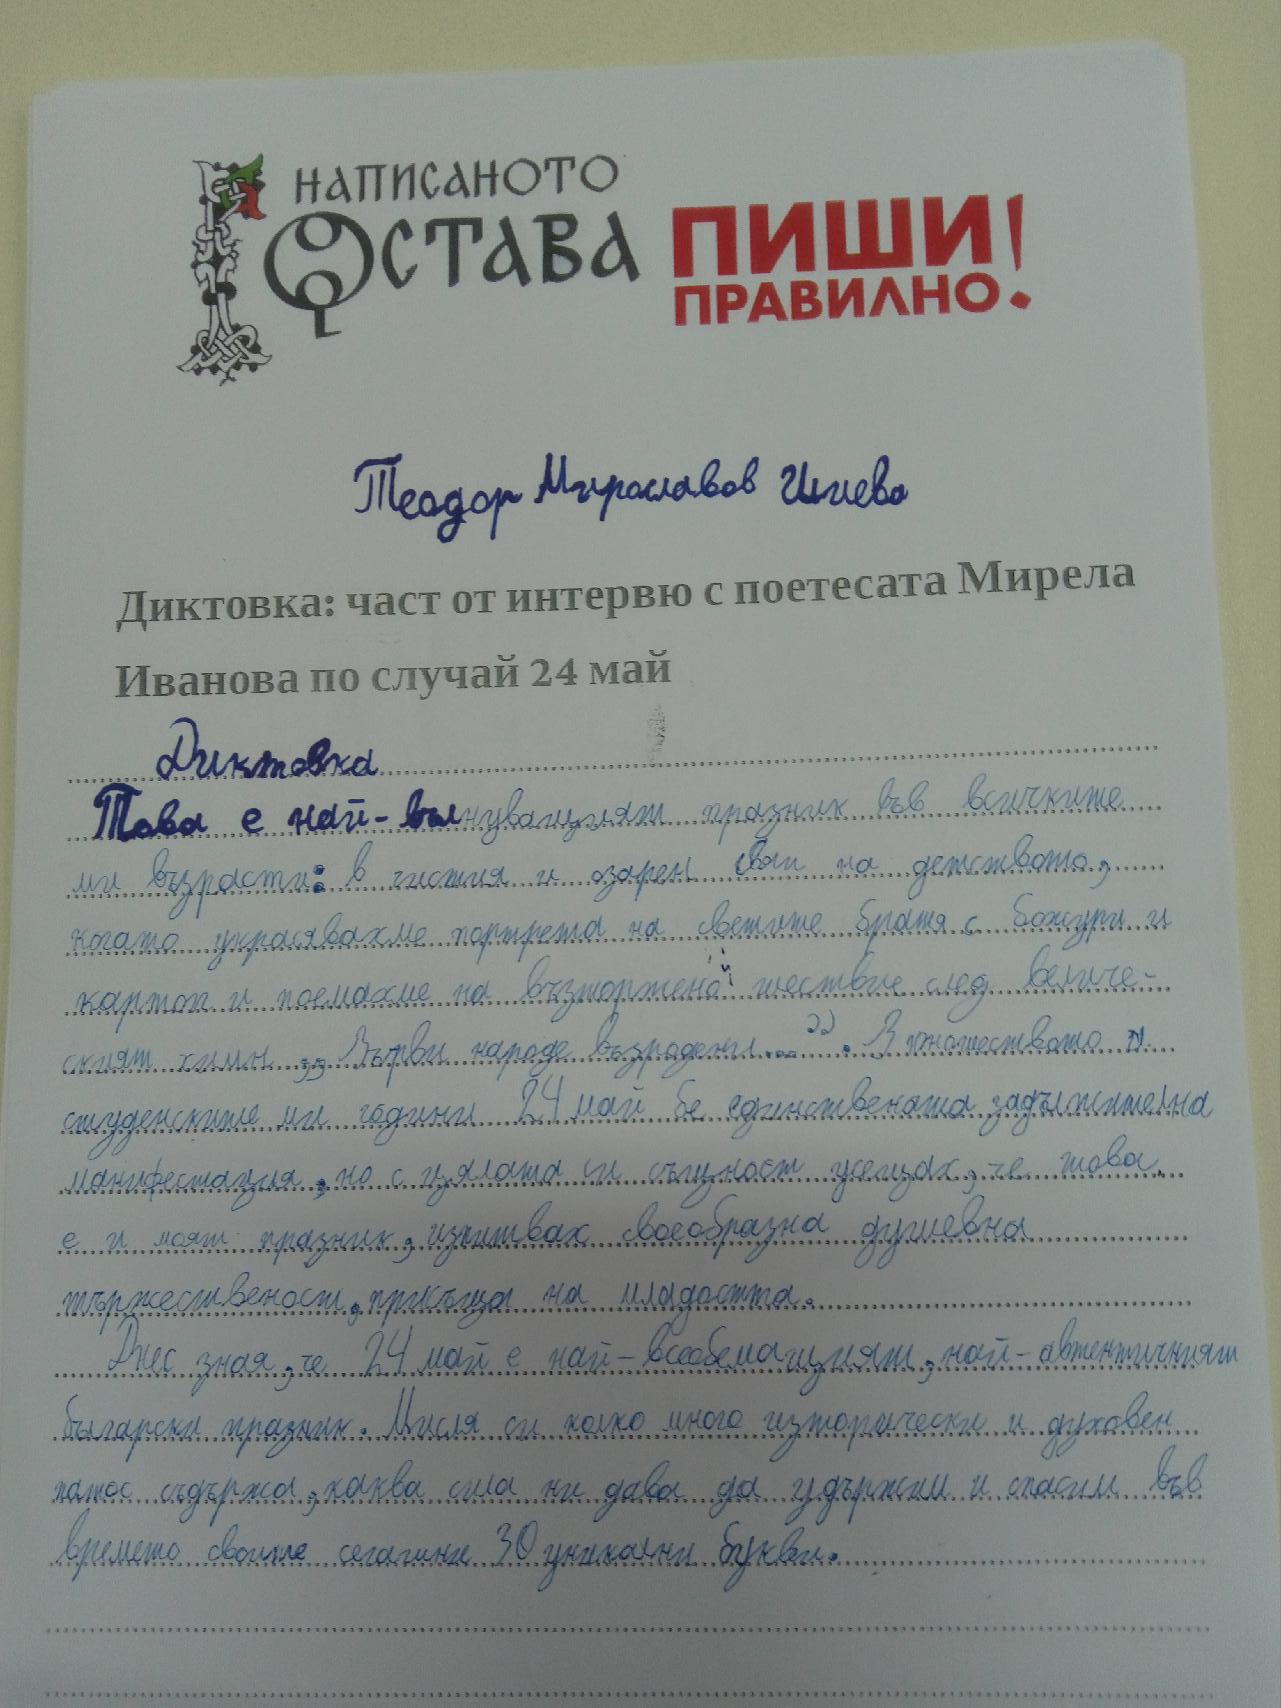 НАПИСАНОТО
ОСТАВА
ПИШИ!
ПРАВИЛНО
Теодор Мирославов
Диктовка: част от интервю с поетесата Мирела
Иванова по случай 24 май
Диктовка
Това е най-вълнуващият празник във всичките
ми възрасти: в чистия и озарен свян на детството,
когато украсявахме портрета на светите братя с божури и
картоп и поемахме на възторжено шествие след величе-
ският химн „Върви народе възродени...“. В юношеството и
студенските ми години 24 май бе единствената задължителна
манифестация, но с цялата си същност усещах, че това
е и моят празник, изпитвах своеобразна душевна
тържественост, присъща на младостта.
Днес зная, че 24 май е най-всеобемащият, най-автентичният
български празник. Мисля си колко много исторически и духовен
патос съдържа, каква сила ни дава да удържим и спасим във
времето своите сегашни 30 уникални букви.